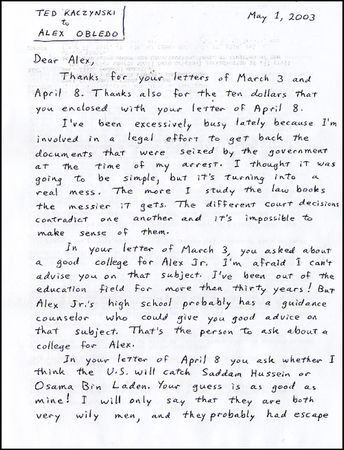 TED KACZYNSKI
to
ALEX OBLEDO
May 1, 2003
Dear Alex,
Thanks for your letters of March 3 and
April 8. Thanks also for the ten dollars that
you enclosed with your letter of April 8.
I've been excessively busy lately because I'm
involved in a legal effort to get back the
documents that were seized by the government
at the time of my arrest. I thought it was
going to be simple, but it's turning into a
real mess. The more I study the law books
the messier it gets. The different court decisions
contradict one another and it's impossible to
make sense of them.
In your letter of March 3, you asked about
a good college for Alex Jr. I'm afraid I can't
advise you on that subject. I've been out of the
education field for more than thirty years! But
Alex Jr.'s high school probably has a guidance
counselor who could give you good advice on
that subject. That's the person to ask about a
college for Alex.
In your letter of April 8 you ask whether I
think the U.S. will catch Saddam Hussein or
Osama Bin Laden. Your guess is as good as
mine! I will only say that they are both
very wily men, and they probably had escape